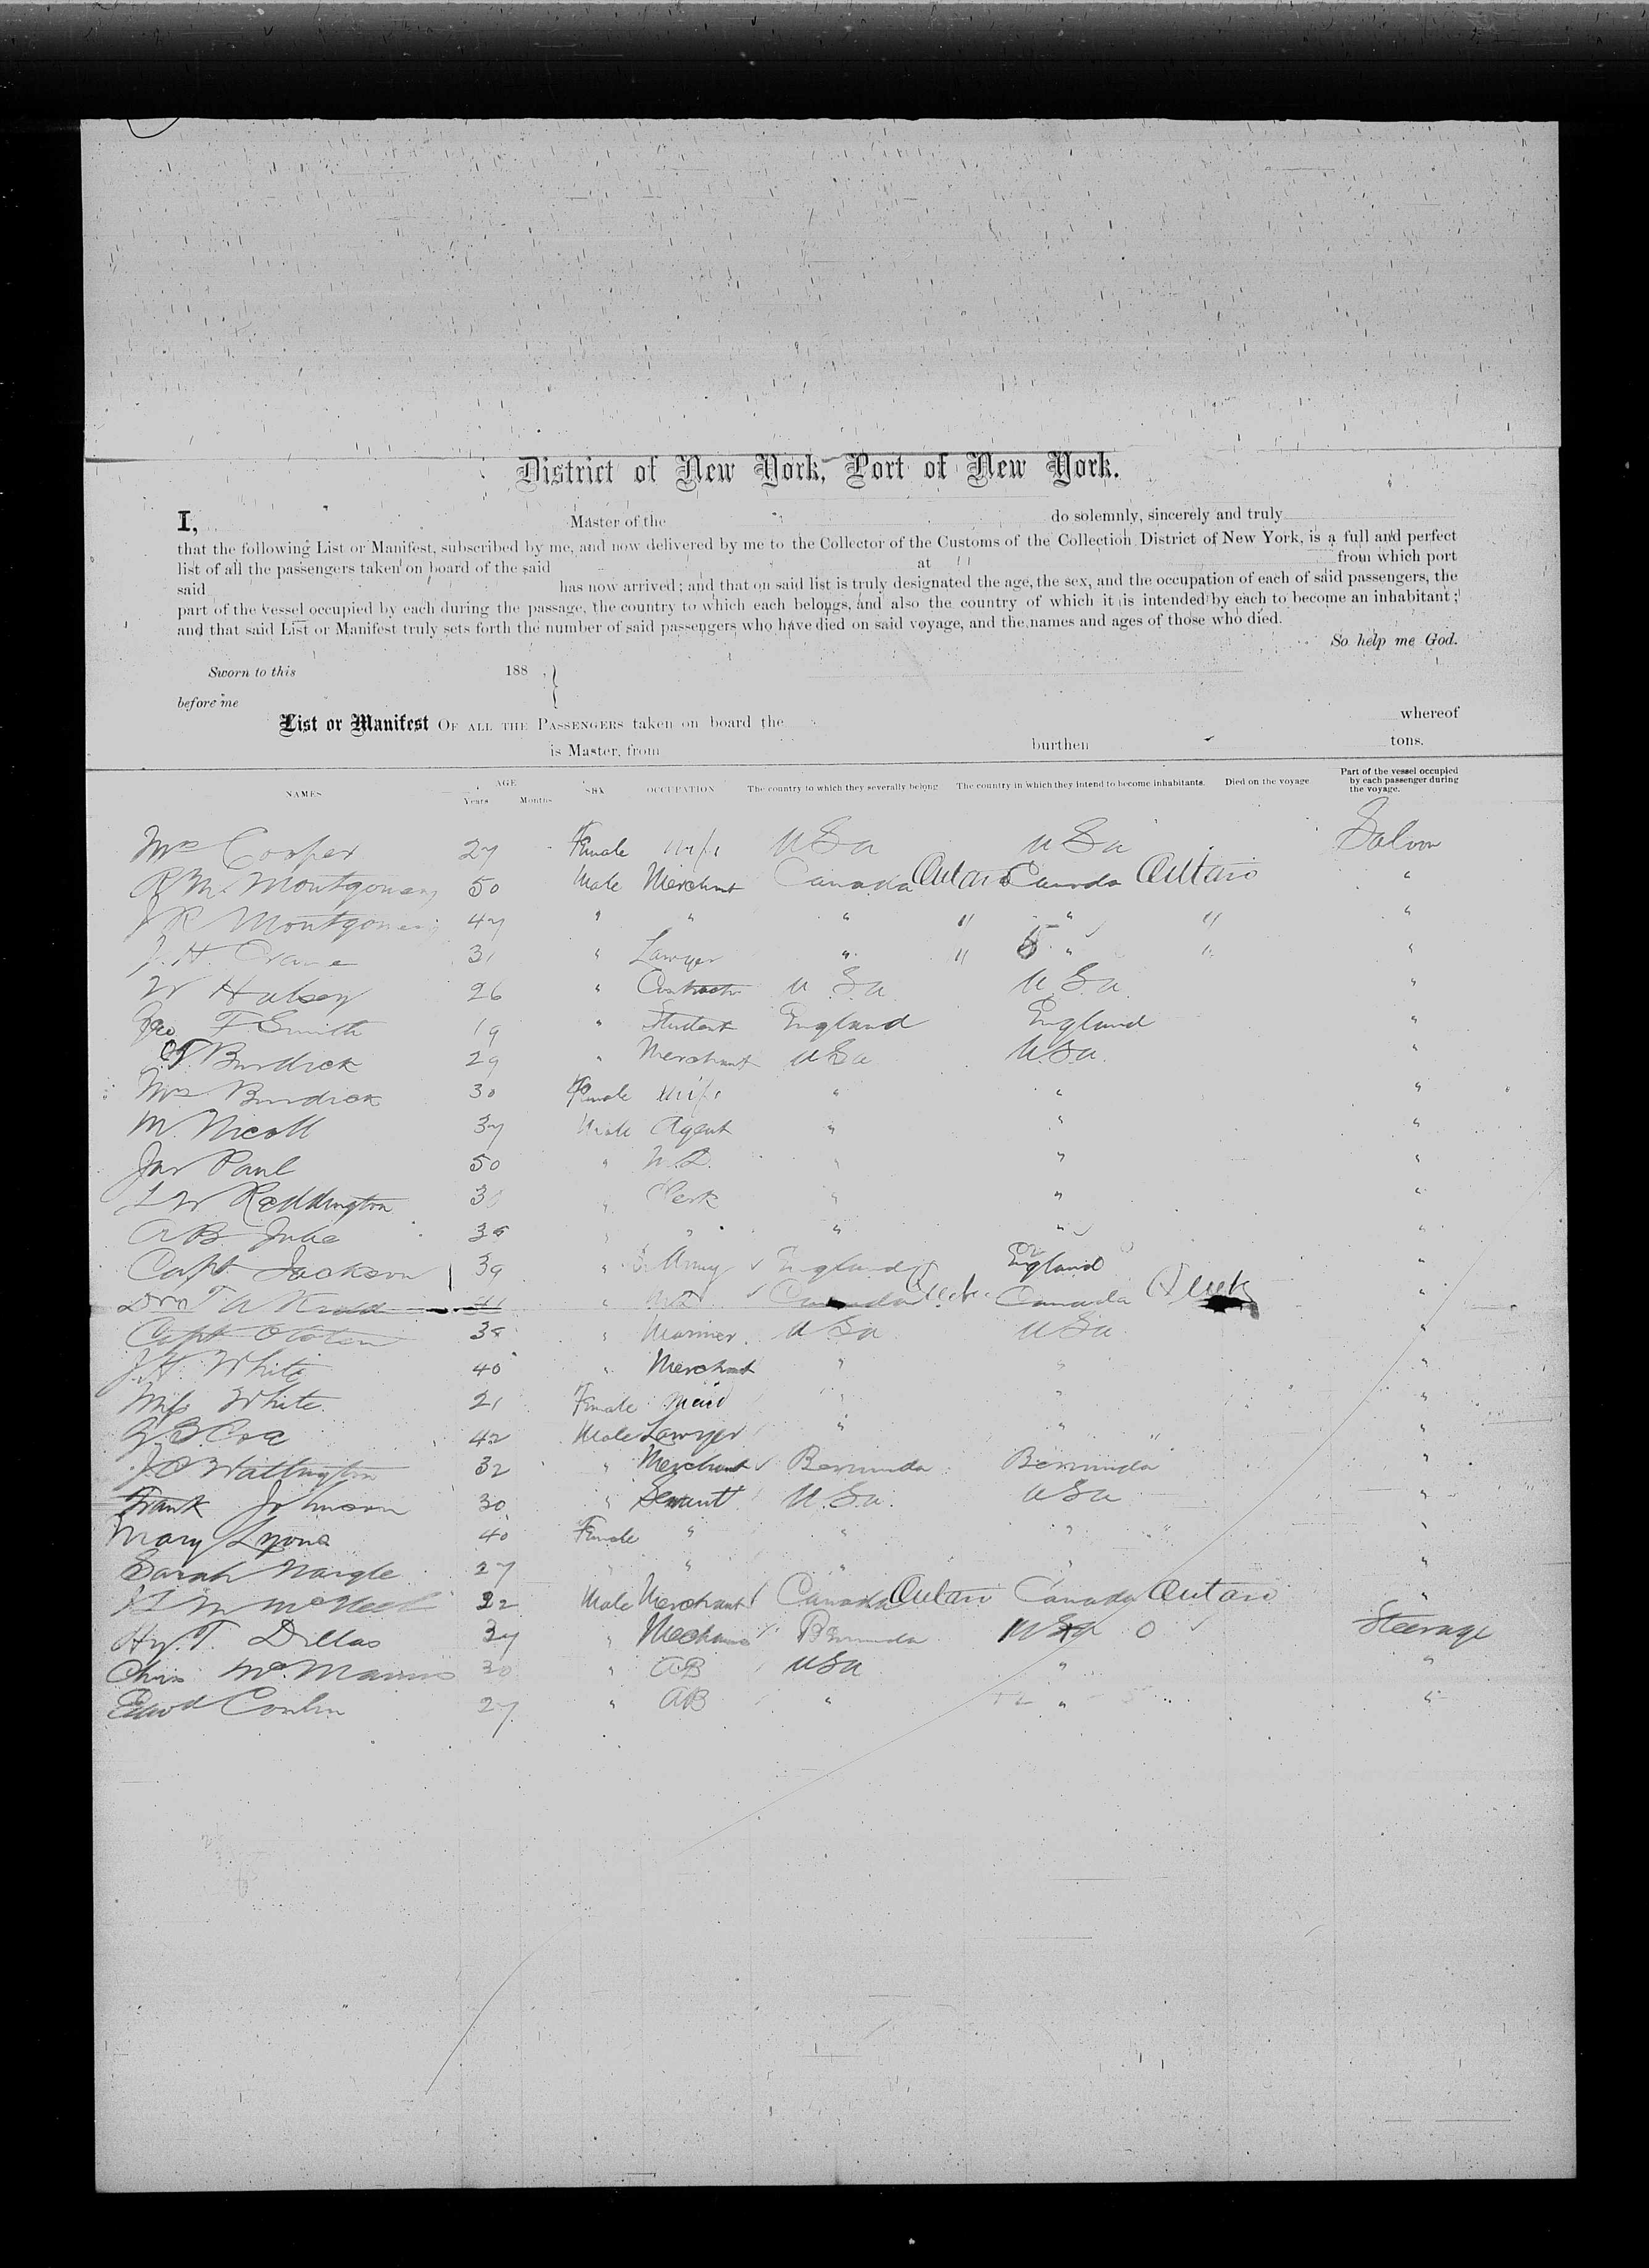 District of New York, Port of New York.
I, Master of the do solemnly, sincerely and truly
that the following List or Manifest, subscribed by me, and now delivered by me to the Collector of the Customs of the Collection District of New York, is a full and perfect
list of all the passengers taken on board of the said at from which port
said has now arrived; and that on said list is truly designated the age, the sex, and the occupation of each of said passengers, the
part of the vessel occupied by each during the passage, the country to which each belongs, and also the country of which it is intended by each to become an inhabitant;
and that said List or Manifest truly sets forth the number of said passengers who have died on said voyage, and the names and ages of those who died.
So help me God.
Sworn to this 188
before me
List or Manifest OF ALL THE PASSENGERS taken on board the whereof
is Master, from burthen tons.
NAMES AGE Years Months SEX OCCUPATION The country to which they severally belong The country in which they intend to become inhabitants. Died on the voyage Part of the vessel occupied by each passenger during the voyage.
Mrs Cooper 27 Female Wife USa USa Saloon
Montgomery 50 Male Merchant Canada Ontario Canada Ontario "
J R Montgomery 47 " " " " " " "
J. H. Crane 31 " Lawyer " " " " "
W Halsey 26 " Contractor U.S.a U.S.a. "
Geo F. Smith 19 " Student England England "
Burdick 29 " Merchant USa U.S.a. "
Mrs Burdick 30 Female Wife " " "
M. Nicoll 37 Male Agent " " "
Jas Paul 50 " M.D. " " "
Reddington " Clerk " " "
A B " " " " "
Capt Jackson 39 " Army England England "
Dr T W " M.D. Canada Canada "
Capt " Mariner USa USa "
J. H. White 40 " Merchant " " "
Miss White 21 Female Maid " " "
Cox 42 Male Lawyer " " "
32 " Merchant Bermuda Bermuda "
Frank Johnson 30 " Servant U.S.a. USa "
Mary Lyons 40 Female " " " "
Sarah Nargle 27 " " " " "
22 Male Merchant Canada Ontario Canada Ontario "
Hy. T. Dillas 37 " Mechanic Bermuda USa Steerage
Chris 30 " AB USa " "
Edwd Conlin 27 " AB " " "